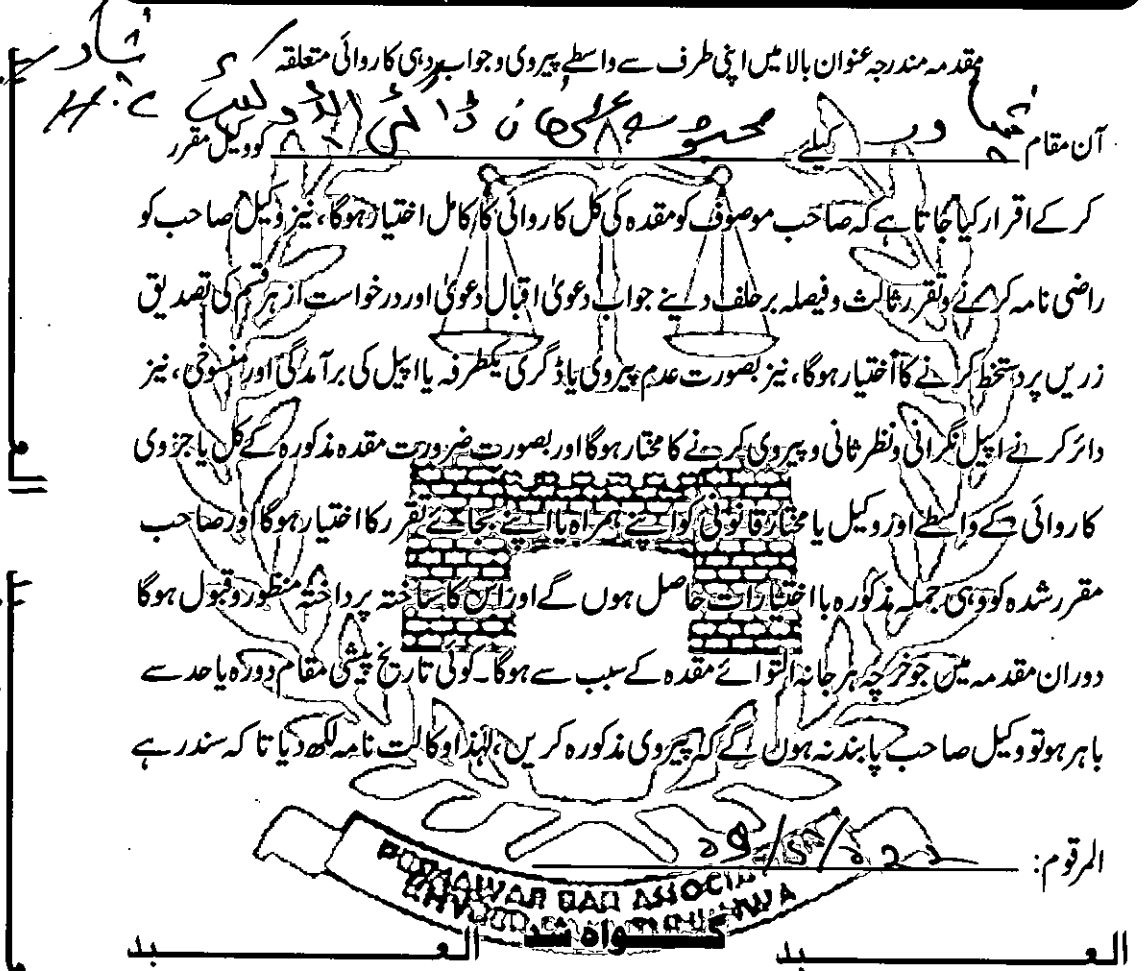 مقدمہ مندرجہ عنوان بالا میں اپنی طرف سے واسطے پیروی وجواب دہی کاروائی متعلقہ
آن مقام پشاور کیلئے محبوب علی خان ڈاگئی ایڈوکیٹ کو وکیل مقرر
کر کے اقرار کیا جاتا ہے کہ صاحب موصوف کو مقدہ کی کل کاروائی کا کامل اختیار ہوگا، نیز وکیل صاحب کو
راضی نامہ کرنے وتقرر ثالث وفیصلہ برحلف دینے جواب دعویٰ اقبال دعویٰ اور درخواست از ہر قسم کی تصدیق
زریں پر دستخط کرنے کا اختیار ہوگا، نیز بصورت عدم پیروی یا ڈگری یکطرفہ یا اپیل کی برآمدگی اور منسوخی، نیز
دائر کرنے اپیل نگرانی ونظر ثانی وپیروی کرنے کا مختار ہوگا اور بصورت ضرورت مقدہ مذکورہ کے کل یا جزوی
کاروائی کے واسطے اور وکیل یا مختار قانونی کو اپنے ہمراہ یا اپنے بجائے تقرر کا اختیار ہوگا اور صاحب
مقرر شدہ کو وہی جملہ مذکورہ بااختیارات حاصل ہوں گے اور اس کا ساختہ پرداختہ منظور وقبول ہوگا
دوران مقدمہ میں جو خرچہ ہرجانہ التوائے مقدہ کے سبب سے ہوگا۔ کوئی تاریخ پیشی مقام دورہ یا حد سے
باہر ہو تو وکیل صاحب پابند نہ ہوں گے کہ پیروی مذکورہ کریں، لہٰذا وکالت نامہ لکھ دیا تا کہ سند رہے
المرقوم:
BAR ASSOCI
العبد گواہ شد العبد